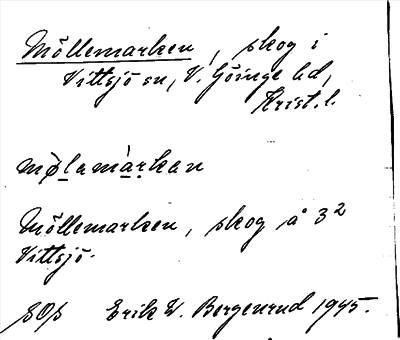 Möllemarken, skog i
Vittsjö sn, V. Göinge hd,
Krist. l.
mølamarkan
Möllemarken, skog å 3²
Vittsjö.
SOþ Erik W. Bergenrud 1945.